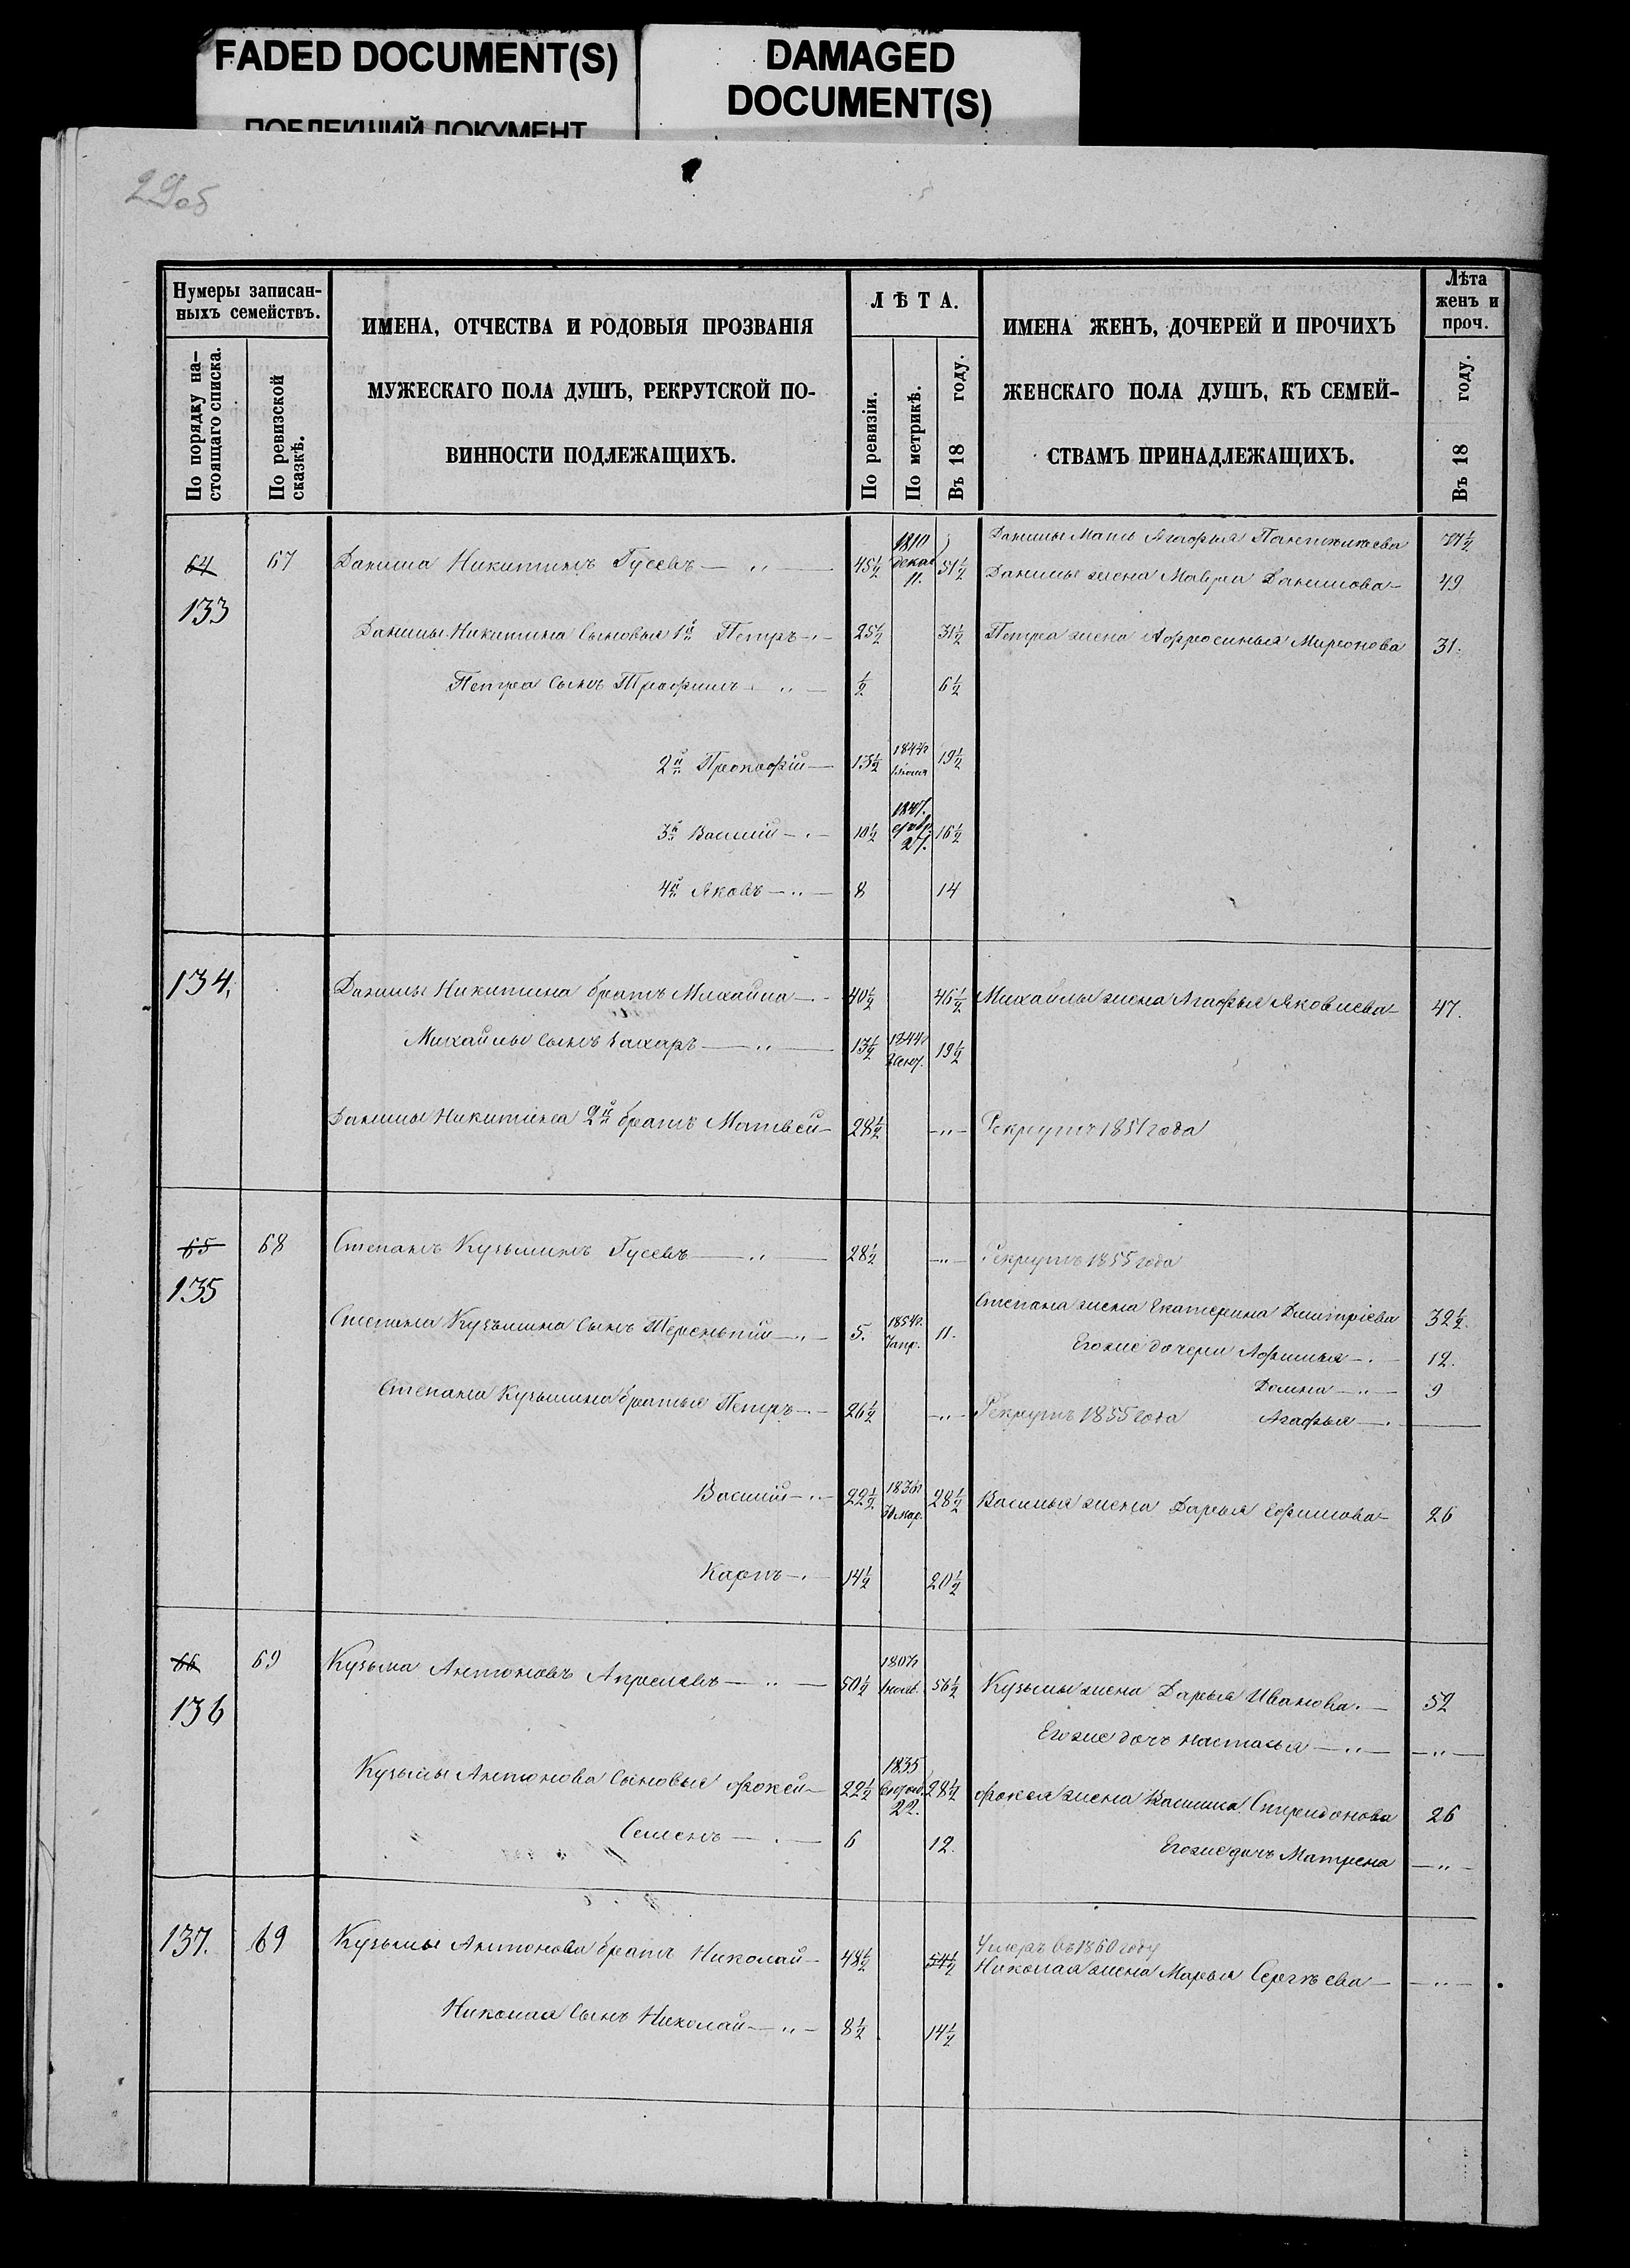 FADED DOCUMENT(S)
ПОБЛЕКШИЙ ДОКУМЕНТ
DAMAGED
DOCUMENT(S)
29об
Нумеры записан-
ныхъ семействъ.
По порядку на-
стоящаго списка.
По ревизской
сказкѣ.
ИМЕНА, ОТЧЕСТВА И РОДОВЫЯ ПРОЗВАНІЯ
МУЖЕСКАГО ПОЛА ДУШЪ, РЕКРУТСКОЙ ПО-
ВИННОСТИ ПОДЛЕЖАЩИХЪ.
ЛѢТА.
По ревизіи.
По метрикѣ.
Въ 18 году.
ИМЕНА ЖЕНЪ, ДОЧЕРЕЙ И ПРОЧИХЪ
ЖЕНСКАГО ПОЛА ДУШЪ, КЪ СЕМЕЙ-
СТВАМЪ ПРИНАДЛЕЖАЩИХЪ.
Лѣта
женъ и
проч.
Въ 18 году.
Данилы Мать Агафья 71½
64 67 Данила Никитинъ Гусевъ — " — 45½ 1810 декаб 11. 51½ Данилы жена Мавра Данилова — 49
133
Данилы Никитина Сыновья 1й Петръ — 25½ 31½ Петра жена Афросинья Миронова 31.
Петра Сынъ Трофимъ — " — ½ 6½
2й Прокофій — 13½ 1844г 19½
3й Василій — 10½ 1847. 27. 16½
4й Яковъ — " — 8 14
134. Данилы Никитина братъ Михайла — 40½ 46½ Михайлы жена Агафья Яковлева — 47.
Михайлы сынъ Захаръ — " — 13½ 1844г 19½
Данилы Никитина 2й братъ Матвей — 28½ — " — Рекрутъ 1851 года
65 68 Степанъ Кузьминъ Гусевъ — " — 28½ — " — Рекрутъ 1855 года
135
Степана жена Екатерина Дмитріева 32½.
Степана Кузьмина Сынъ Терентій — " — 5. 1854г. 11.
Егоже дочери Афимья — 12.
Домна — " — 9
Степана Кузьмина братья Петръ — 26½ — " — Рекрутъ 1855 года Агафья —
Василій — " — 22½ 1836г 30 мар. 28½ Василья жена Дарья Ефимова — 26
Карпъ — 14½ 20½
66 69 Кузьма Антоновъ — " — 50½ 1807г 56½ Кузьмы жена Дарья Иванова. — 52
136
Егоже дочь Настасья — " — — " —
Кузьмы Антонова Сыновья Фокей — 22½ 1835 22. 28½ Фокея жена Василиса Спиридонова 26
Семенъ — 6 12. Егоже дочь Матрена — " —
137. 69 Кузьмы Антонова братъ Николай — 48½ 54½ Умеръ въ 1860 году
Николая жена Марья Сергѣева — — " —
Николая Сынъ Николай — " — 8½ 14½